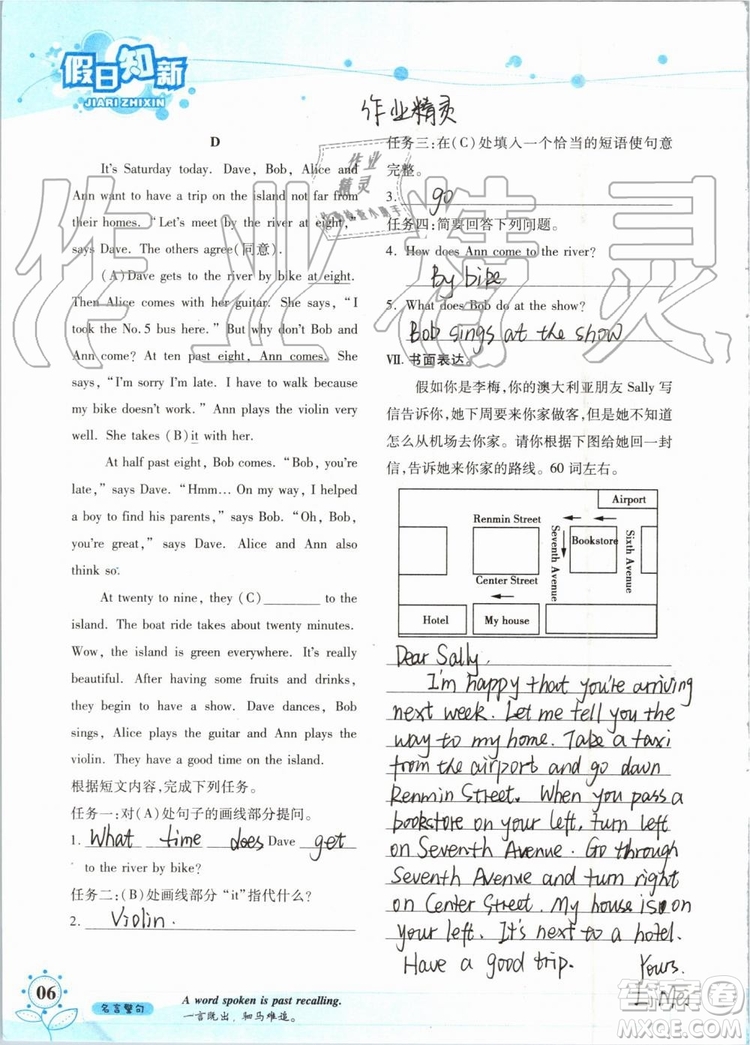 假日知新
JIARI ZHIXIN
作业精灵
D
It's Saturday today. Dave, Bob, Alice and
Ann want to have a trip on the island not far from
their homes. "Let's meet by the river at eight,"
says Dave. The others agree(同意).
(A)Dave gets to the river by bike at eight.
Then Alice comes with her guitar. She says, "I
took the No. 5 bus here." "But how does Bob and
Ann come? At ten past eight, Ann comes. She
says, "I'm sorry I'm late. I have to walk because
my bike doesn't work." Ann plays the violin very
well. She takes (B)it with her.
At half past eight, Bob comes. "Bob, you're
late," says Dave. "Hmm... On my way, I helped
a boy to find his parents," says Bob. "Oh, Bob,
you're great," says Dave. Alice and Ann also
think so.
At twenty to nine, they (C) ________ to the
island. The boat ride takes about twenty minutes.
Wow, the island is green everywhere. It's really
beautiful. After having some fruits and drinks,
they begin to have a show. Dave dances, Bob
sings, Alice plays the guitar and Ann plays the
violin. They have a good time on the island.
根据短文内容,完成下列任务。
任务一:对(A)处句子的画线部分提问。
1. What time does Dave get
to the river by bike?
任务二:(B)处画线部分"it"指代什么?
2. Violin.
任务三:在(C)处填入一个恰当的短语使句意
完整。
3. go
任务四:简要回答下列问题。
4. How does Ann come to the river?
By bike
5. What does Bob do at the show?
Bob sings at the show
Ⅶ. 书面表达。
假如你是李梅,你的澳大利亚朋友 Sally 写
信告诉你,她下周要来你家做客,但是她不知道
怎么从机场去你家。请你根据下图给她回一封
信,告诉她来你家的路线。60 词左右。
Airport
Renmin Street
Seventh Avenue
Bookstore
Sixth Avenue
Center Street
Hotel
My house
Dear Sally.
I'm happy that you're arriving
next week. Let me tell you the
way to my home. Take a taxi
from the airport and go down
Renmin Street. When you pass a
bookstore on your left, turn left
on Seventh Avenue. Go through
Seventh Avenue and turn right
on Center Street. My house is on
your left. It's next to a hotel.
Have a good trip. Yours.
06
名言警句
A word spoken is past recalling.
一言既出,驷马难追。